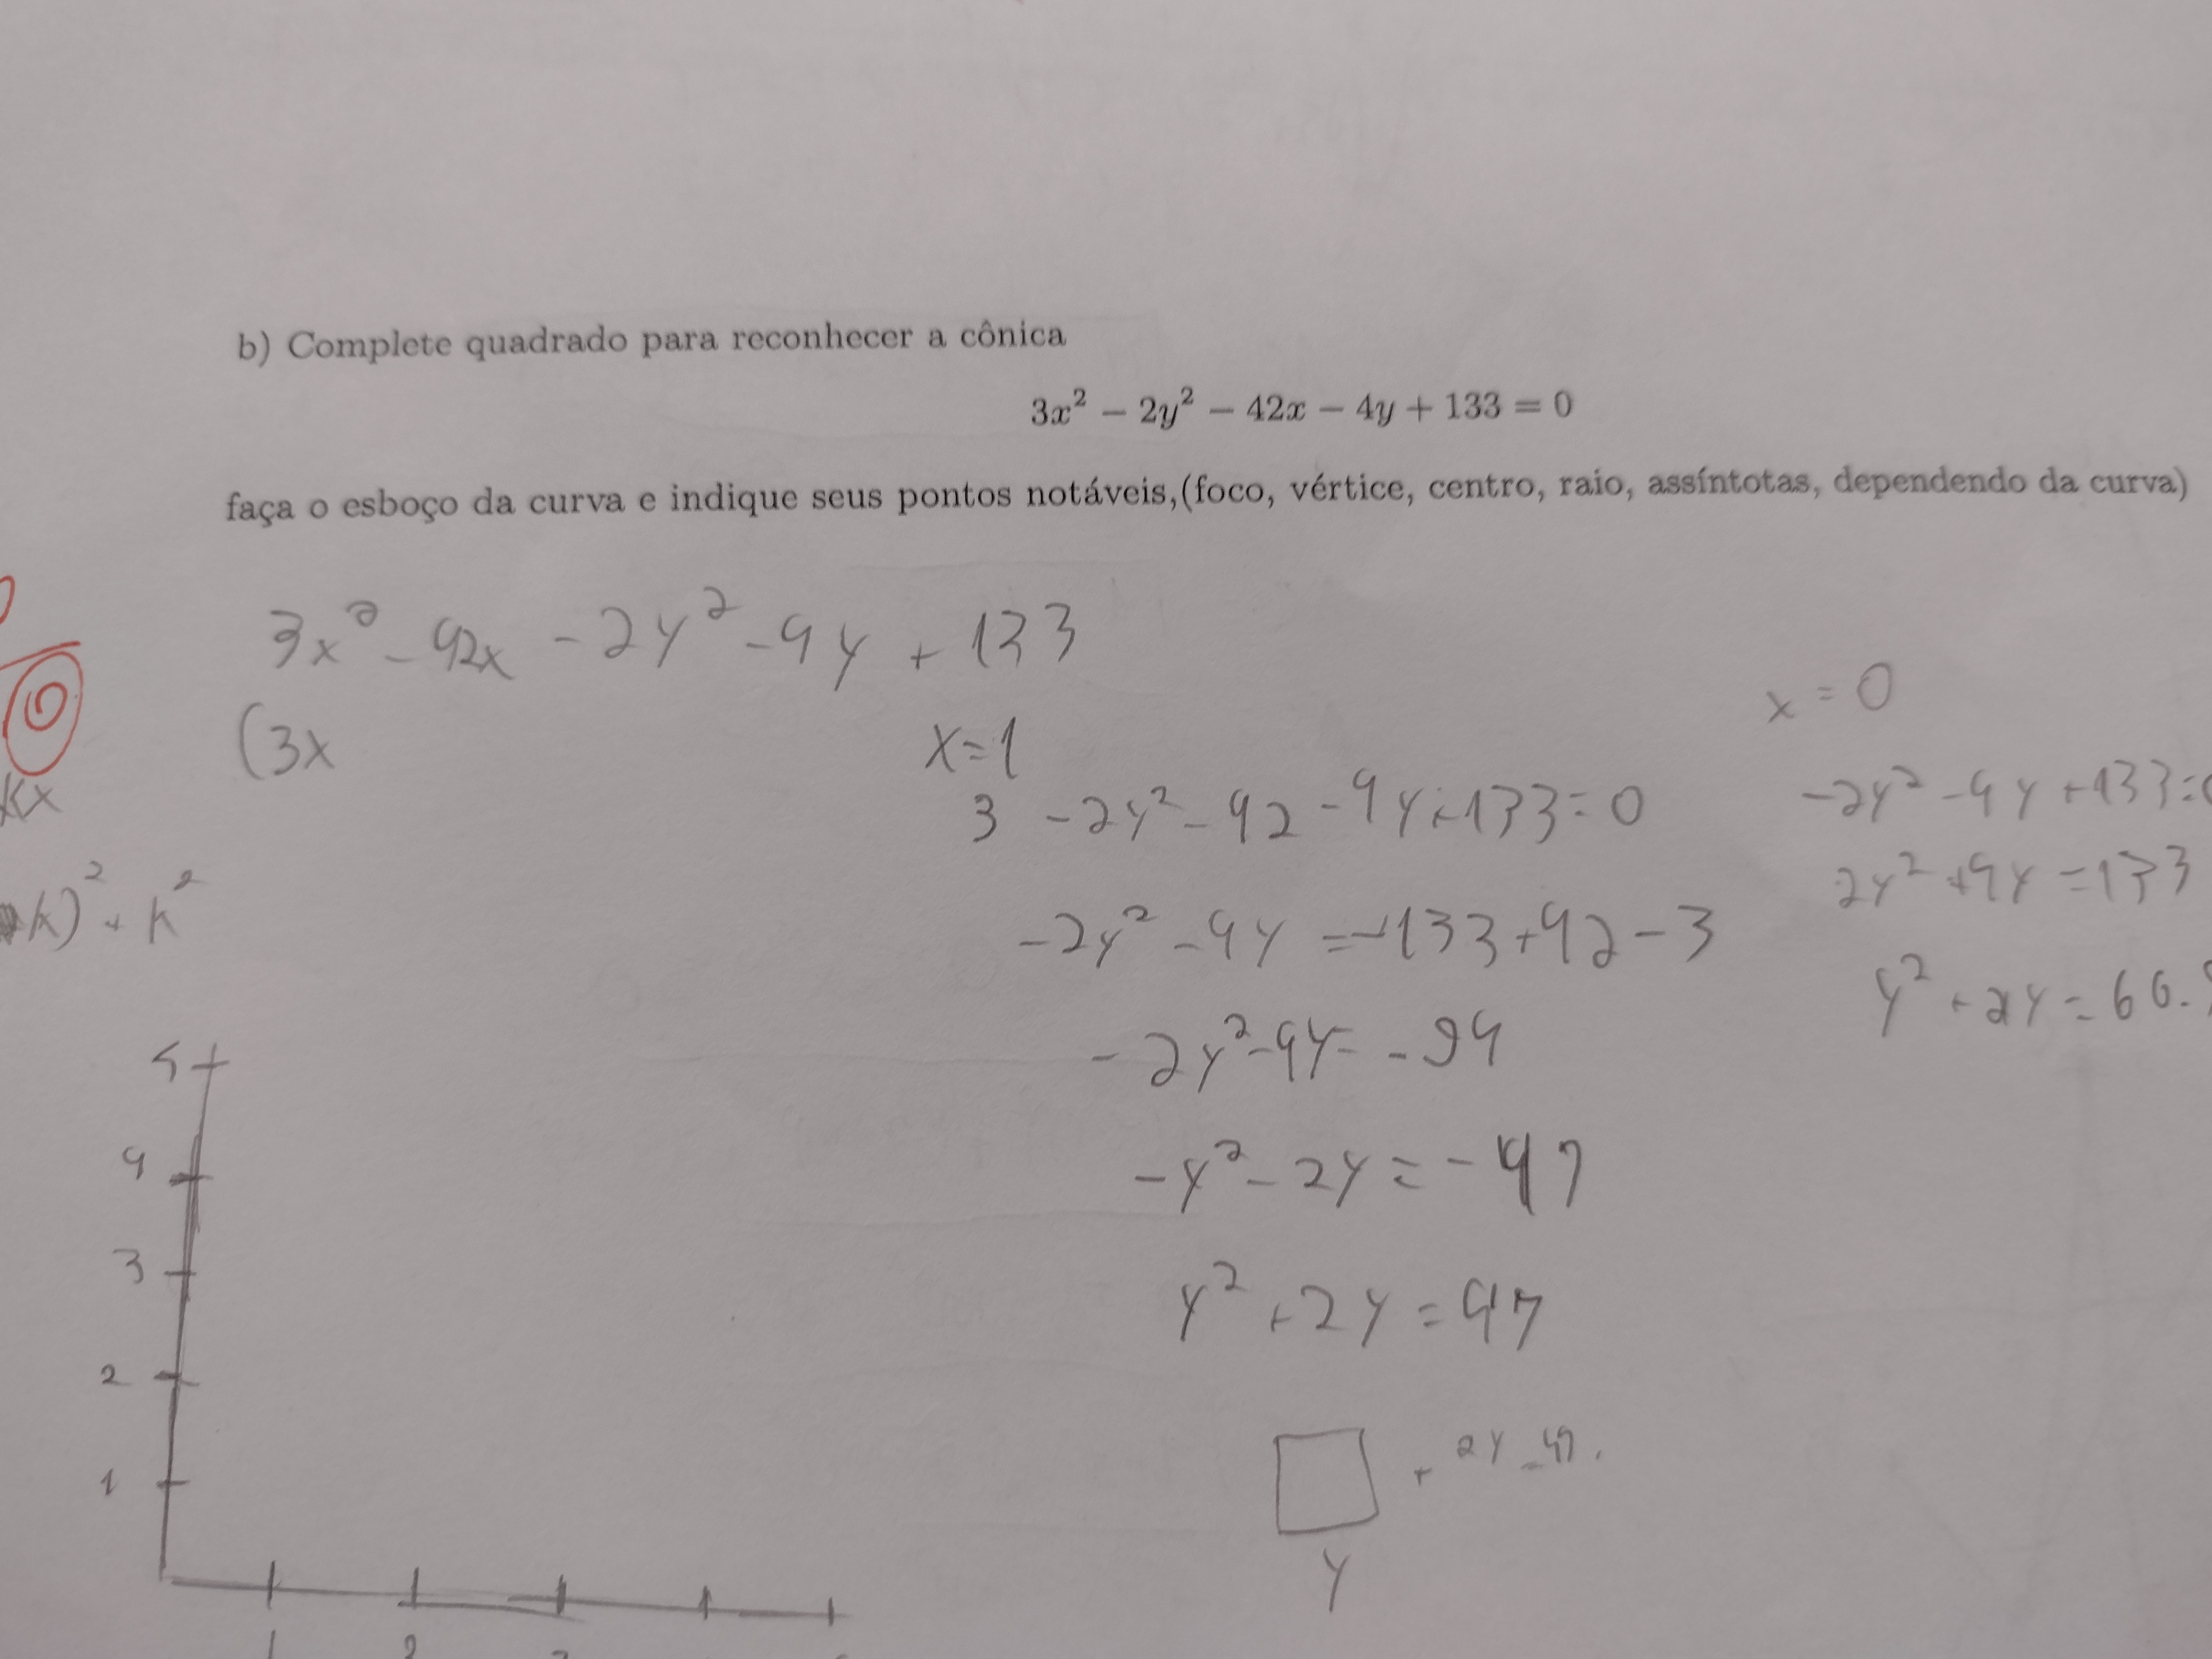 b) Complete quadrado para reconhecer a cônica
3x² − 2y² − 42x − 4y + 133 = 0
faça o esboço da curva e indique seus pontos notáveis,(foco, vértice, centro, raio, assíntotas, dependendo da curva)
3x² - 42x - 2y² - 4y + 133
(3x
x=1
3 - 2y² - 42 - 4y + 133 = 0
-2y² - 4y = -133 + 42 - 3
-2y² - 4y = -94
-y² - 2y = -47
y² + 2y = 47
+ 2y = 47.
y
x = 0
-2y² - 4y + 133 = 0
2y² + 4y = 133
y² + 2y = 66.5
0
kx
k)² + k²
5
4
3
2
1
1 2 3